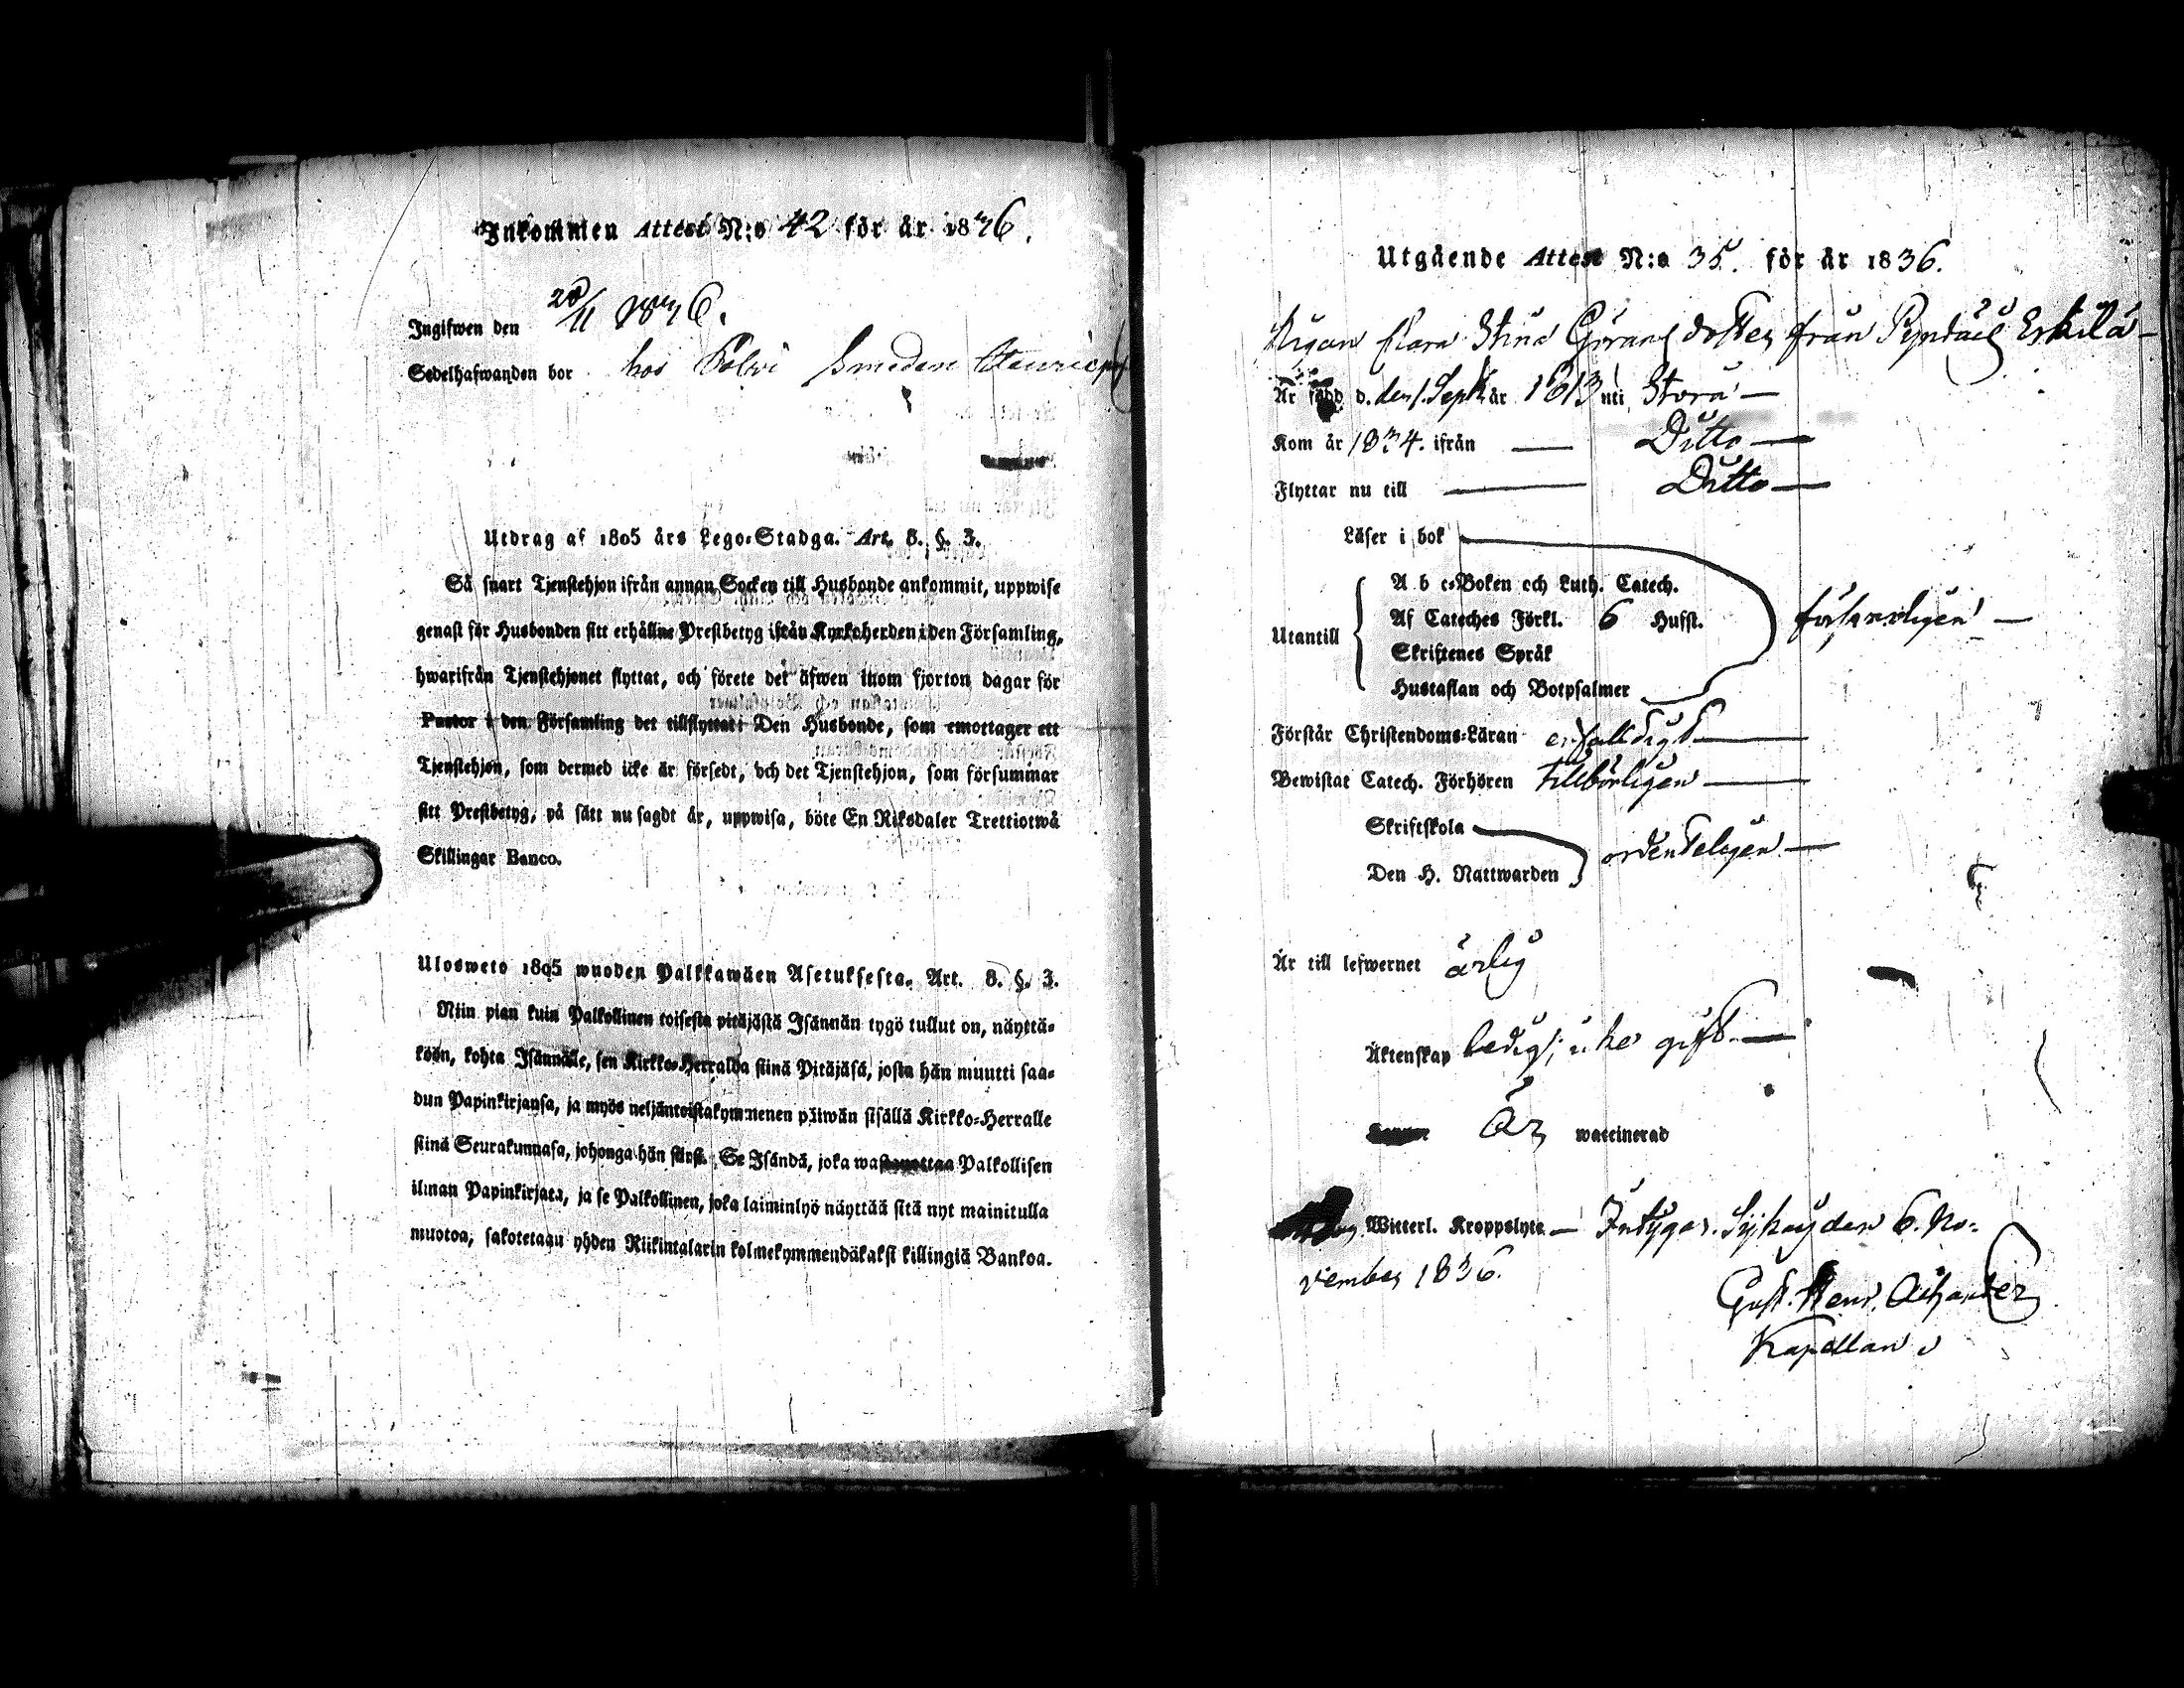 Inkommen Attest N:o 42 för år 1836.
Ingifwen den 28/11 1836.
Sedelhafwanden bor hos Polvi Smeden
Utdrag af 1805 års Lego-Stadga. Art. 8. §. 3.
Så snart Tjenstehjon ifrån annan Socken till Husbonde ankommit, uppwise
genast för Husbonden sitt erhållne Prestbetyg ifrån Kyrkoherden i den Församling,
hwarifrån Tjenstehjonet flyttat, och förete det äfwen inom fjorton dagar för
Pastor i den Församling det tillflyttat: Den Husbonde, som emottager ett
Tjenstehjon, som dermed icke är försedt, och det Tjenstehjon, som försummar
sitt Prestbetyg, på sätt nu sagdt är, uppwisa, böte En Riksdaler Trettiotwå
Skillingar Banco.
Ulosweto 1805 wuoden Palkkawäen Asetuksesta. Art. 8. §. 3.
Niin pian kuin Palkollinen toisesta pitäjästä Isännän tygö tullut on, näyttä-
köön, kohta Isännälle, sen Kirkko-Herralda siinä Pitäjäsä, josta hän muutti saa-
dun Papinkirjansa, ja myös neljäntoistakymmenen päiwän sisällä Kirkko-Herralle
siinä Seurakunnasa, johonga hän siirsi. Se Isändä, joka wastaanottaa Palkollisen
ilman Papinkirjata, ja se Palkollinen, joka laiminlyö näyttää sitä nyt mainitulla
muotoa, sakotetaan yhden Riikintalarin kolmekymmendäkaksi killingiä Bankoa.
Utgående Attest N:o 35. för år 1836.
Pigan Clara Stina Göransdotter från Eskilä
Är född d. den 1. Sept. år 1813 uti Storå
Kom år 1834. ifrån Ditto
Flyttar nu till Ditto
Läser i bok
A b c-Boken och Luth. Catech.
Af Cateches Förkl. 6 Hufst. försvarligen
Utantill
Skriftenes Språk
Hustaflan och Botpsalmer
Förstår Christendoms-Läran enfalldigt
Bewistat Catech. Förhören tillbörligen
Skriftskola
ordenteligen
Den H. Nattwarden
Är till lefwernet ärlig
Äktenskap ledig; icke gift
Är waccinerad
Witterl. Kroppslyte Intygar. den 6. No-
vember 1836.
Gust. Henr.
Kapellan